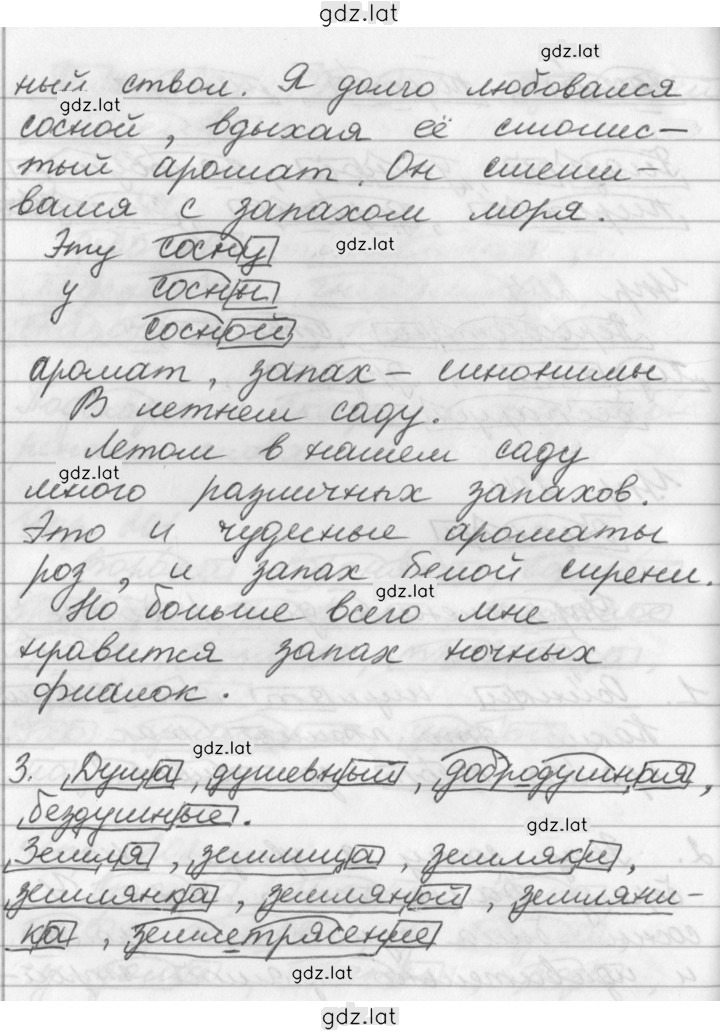 gdz.lat
gdz.lat
ный ствол. Я долго любовался
gdz.lat
сосной, вдыхая её смолис-
тый аромат. Он смеши-
вался с запахом моря.
Эту сосну
gdz.lat
у сосны
сосной
аромат, запах – синонимы
В летнем саду.
Летом в нашем саду
gdz.lat
много различных запахов.
Это и чудесные ароматы
роз, и запах белой сирени.
gdz.lat
Но больше всего мне
нравится запах ночных
фиалок.
gdz.lat
3. Душа, душевный, добродушная,
бездушные.
gdz.lat
Земля, землица, земляки,
землянка, земляной, земляни-
ка, землетрясение
gdz.lat
gdz.lat